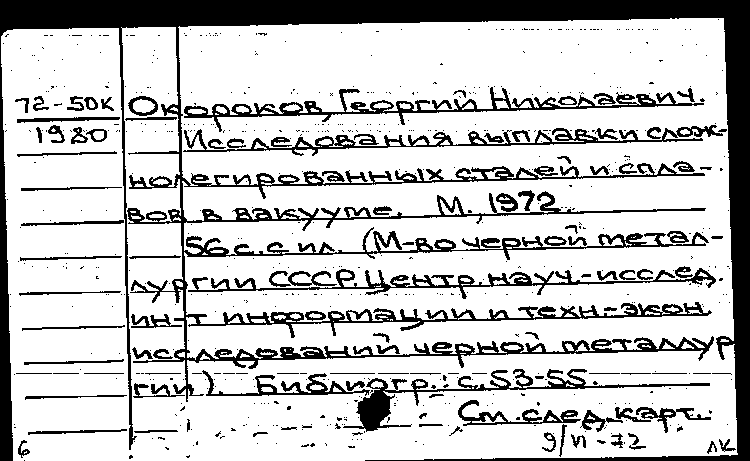 72-50К Окороков, Георгий Николаевич.
1980 Исследования выплавки слож-
нолегированных сталей и спла-
вов в вакууме. М., 1972.
56 с. с ил. (М-во черной метал-
лургии СССР. Центр. науч.-исслед.
ин-т информации и техн.-экон.
исследований черной металлур
гии). Библиогр.: с. 53-55.
См. след. карт.
6 9/VI-72 ЛК